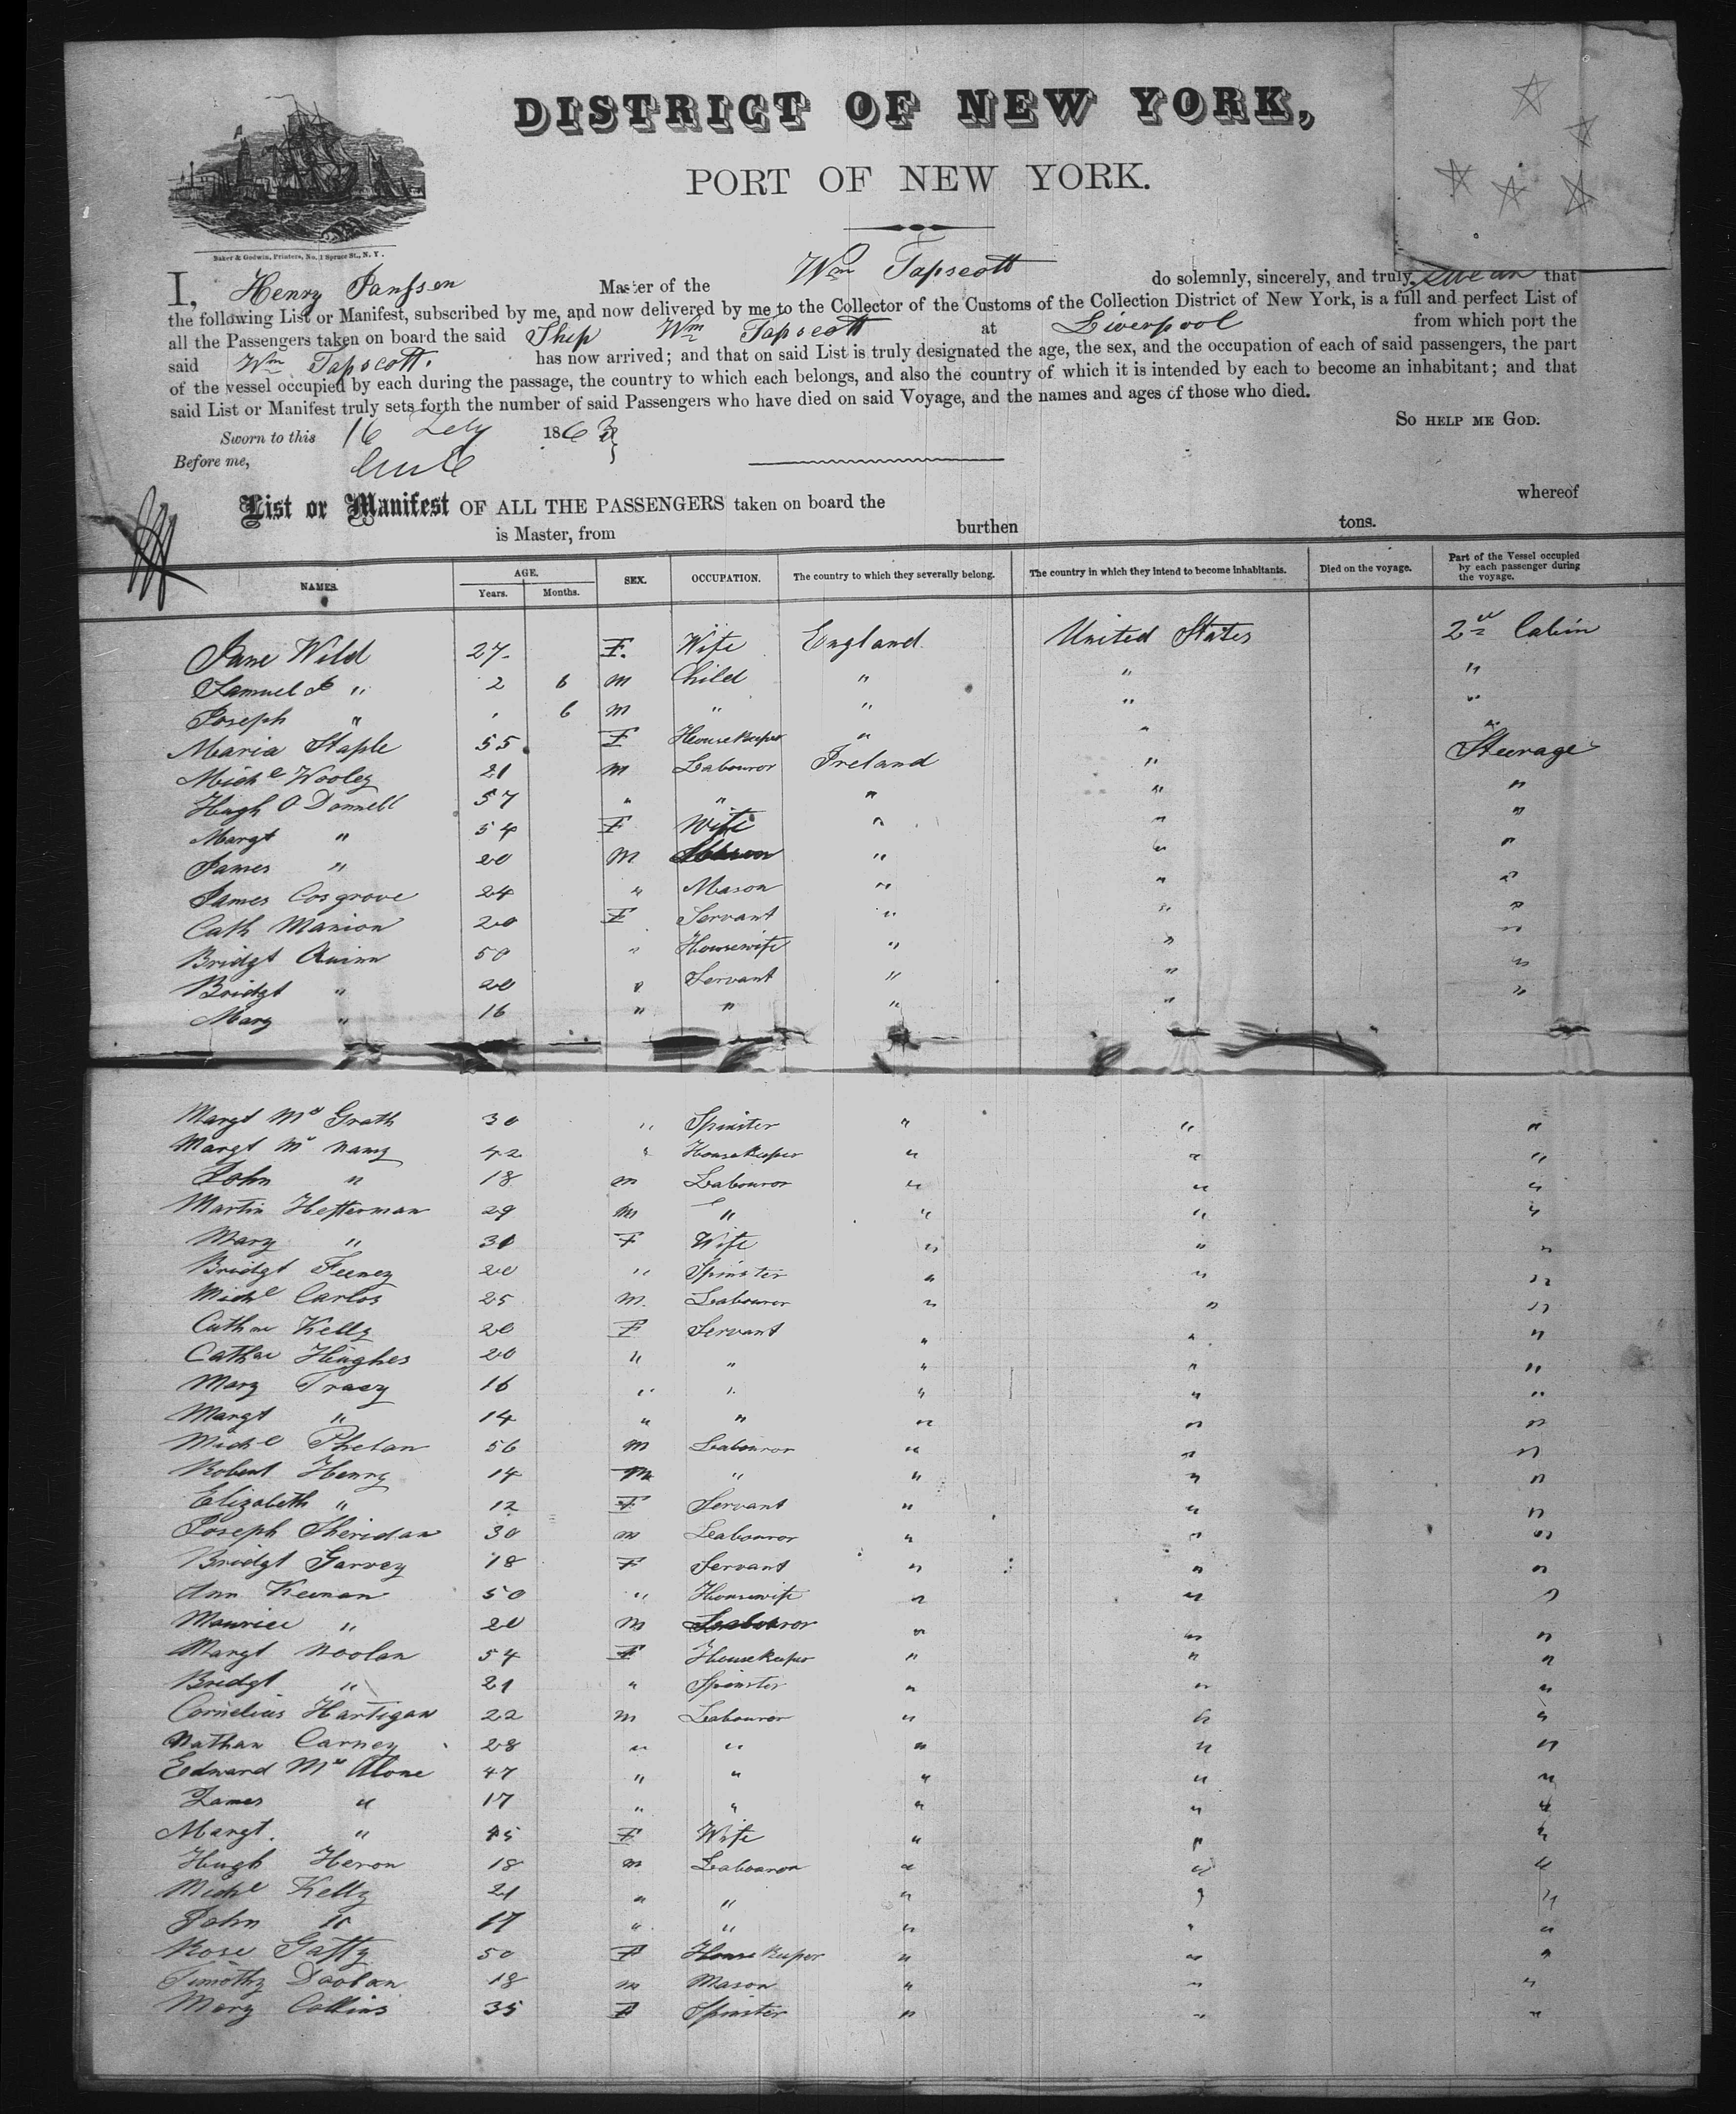 DISTRICT OF NEW YORK,
PORT OF NEW YORK.
Baker & Godwin, Printers, No. 1 Spruce St., N. Y.
I, Henry Master of the Wm Tapscott do solemnly, sincerely, and truly swear that
the following List or Manifest, subscribed by me, and now delivered by me to the Collector of the Customs of the Collection District of New York, is a full and perfect List of
all the Passengers taken on board the said Ship Wm Tapscott at Liverpool from which port the
said Wm Tapscott. has now arrived; and that on said List is truly designated the age, the sex, and the occupation of each of said passengers, the part
of the vessel occupied by each during the passage, the country to which each belongs, and also the country of which it is intended by each to become an inhabitant; and that
said List or Manifest truly sets forth the number of said Passengers who have died on said Voyage, and the names and ages of those who died.
So help me God.
Sworn to this 16 186
Before me,
List or Manifest OF ALL THE PASSENGERS taken on board the whereof
is Master, from burthen tons.
NAMES. AGE. Years. Months. SEX. OCCUPATION. The country to which they severally belong. The country in which they intend to become inhabitants. Died on the voyage. Part of the Vessel occupied by each passenger during the voyage.
Jane Wild 27 F. Wife England United States 2nd Cabin
Samuel J " 2 6 m Child " " "
Joseph " 6 m " " " "
Maria Staple 55 F Housekeeper " " "
Michl Wooley 21 m Labouror Ireland " Steerage
Hugh O Donnell 57 " " " " "
Margt " 54 F Wife " " "
James " 20 m " " "
James Cosgrove 24 " Mason " " "
Cath Manion 20 F Servant " " "
Bridgt Quinn 50 " Housewife " " "
Bridgt " 20 " Servant " " "
Mary " 16 " " " " "
Margt Mc Grath 30 " Spinster " " "
Margt Mc Namy 42 " Housekeeper " " "
John " 18 m Labouror " " "
Martin Hefferman 29 m " " " "
Mary " 30 F Wife " " "
Bridgt Feeney 20 " Spinster " " "
Michl Carlos 25 m. Labouror " " "
Cathne Kelly 20 F Servant " " "
Cathne Hughes 20 " " " " "
Mary Tracy 16 " " " " "
Margt " 14 " " " " "
Michl Phelan 56 m Labouror " " "
Robert Henry 14 m " " " "
Elizabeth " 12 F Servant " " "
Joseph Sheridan 30 m Labouror " " "
Bridgt Garvey 18 F Servant " " "
Ann Keenan 50 " Housewife " " "
Maurice " 20 m Labouror " " "
Margt Noolan 54 F Housekeeper " " "
Bridgt " 21 " Spinster " " "
Cornelius Hartigan 22 m Labouror " " "
Nathan Carney 28 " " " " "
Edward Mc Alone 47 " " " " "
James " 17 " " " " "
Margt. " 45 F Wife " " "
Hugh Heron 18 m Labouror " " "
Michl Kelly 21 " " " " "
John " 17 " " " " "
Rose Gaffy 50 F Housekeeper " " "
Timothy Doolan 18 m Mason " " "
Mary Collins 35 F Spinster " " "